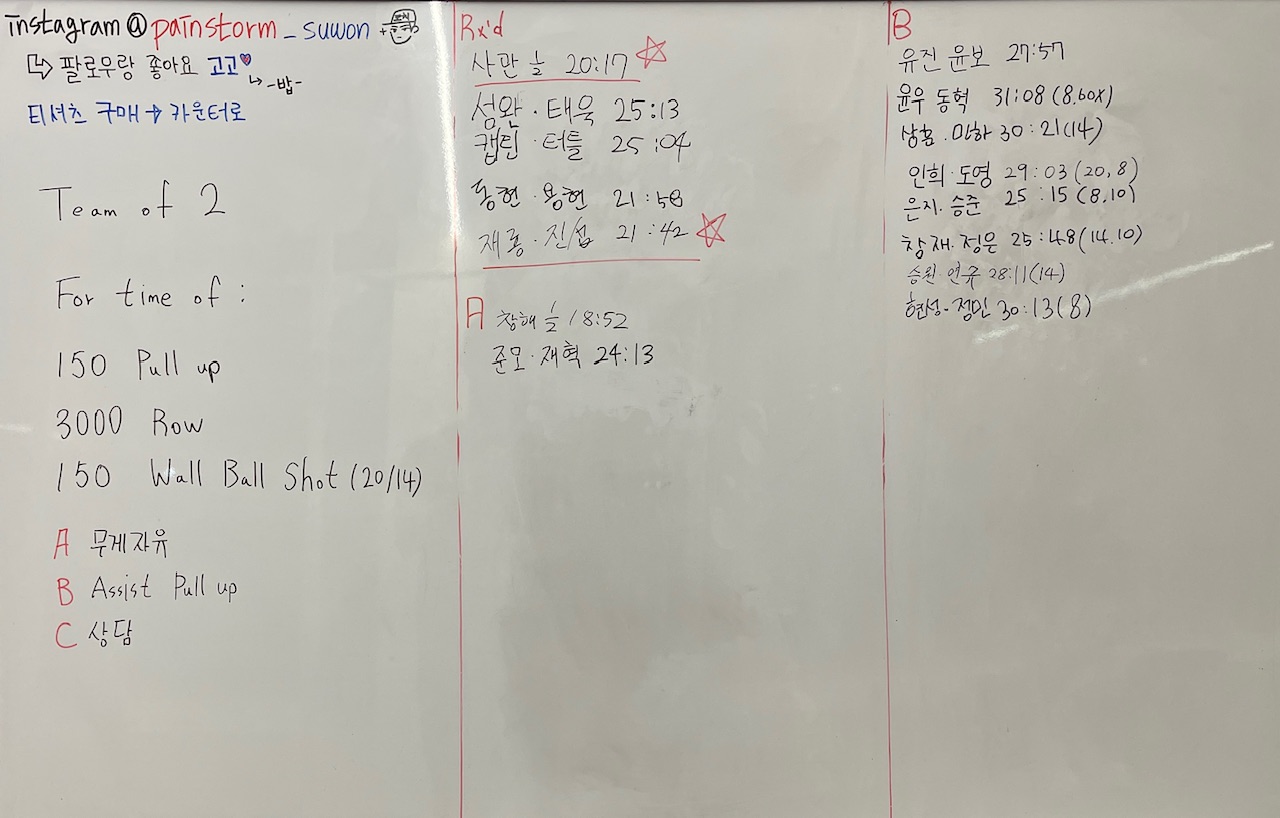 instagram@painstorm_suwon +
↳ 팔로우랑 좋아요 고고♥
↳ -밥-
티셔츠 구매 → 카운터로
Team of 2
For time of :
150 Pull up
3000 Row
150 Wall Ball Shot (20/14)
A 무게자유
B Assist Pull up
C 상담
Rx'd
사만 늘 20:17 ☆
성완·태욱 25:13
캡틴·터틀 25:04
동현·용현 21:58
재룡·진섭 21:42 ☆
A 창해 늘 18:52
준모·재혁 24:13
B
유진 윤보 27:57
윤우 동혁 31:08 (8.box)
상홈.민하 30:21(14)
인희·도영 29:03 (20,8)
은지.승준 25:15 (8,10)
창재.정은 25:48(14.10)
승원·연규 28:11(14)
현성-정민 30:13(8)